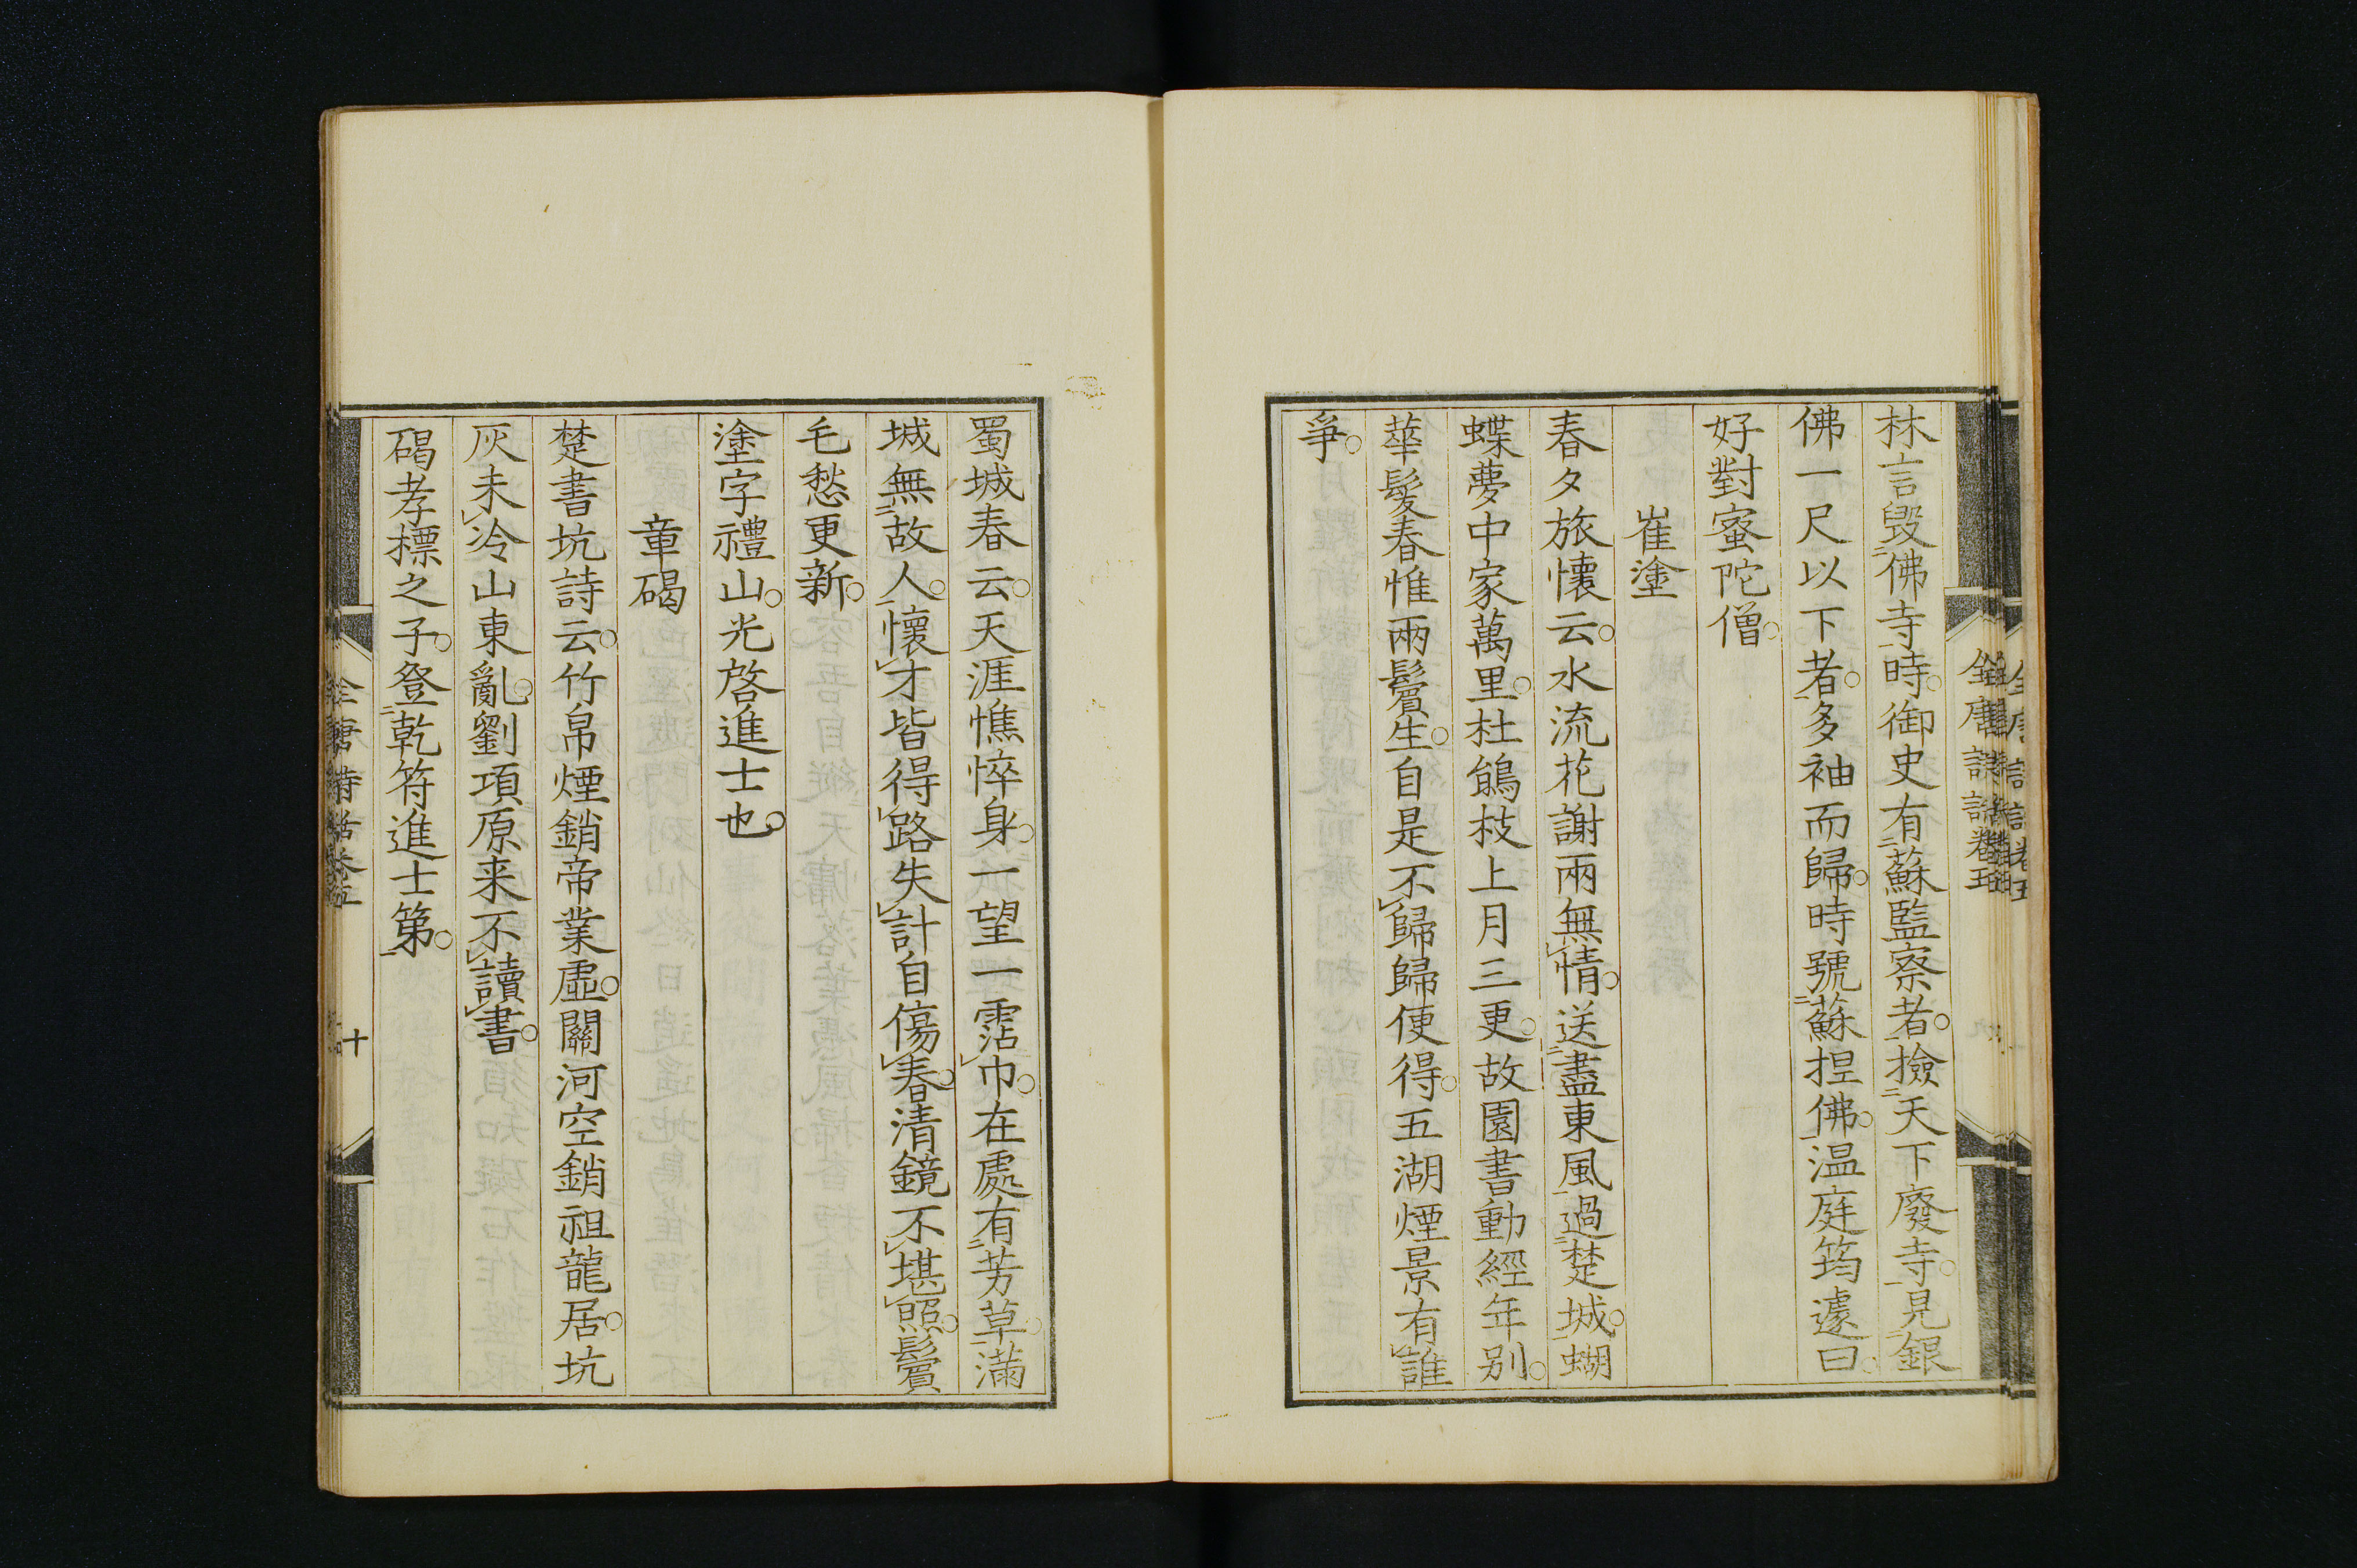 林言毀佛寺時御史有蘇監察者撿天下廢寺見銀
佛一尺以下者多袖而歸時號蘇捏佛温庭筠遽曰
好對蜜陀僧
崔塗
春夕旅懷云水流花謝兩無情送盡東風過楚城蝴
蝶夢中家萬里杜鵑枝上月三更故園書動經年别
華髮春惟兩鬢生自是不歸歸便得五湖煙景有誰
爭
蜀城春云天涯憔悴身一望一霑巾在處有芳草滿
城無故人懷才皆得路失計自傷春清鏡不堪照鬢
毛愁更新
塗字禮山光啓進士也
章碣
楚書坑詩云竹帛煙銷帝業虛關河空銷祖龍居坑
灰未冷山東亂劉項原来不讀書
碣孝標之子登乾符進士第
全唐詩話卷五
十